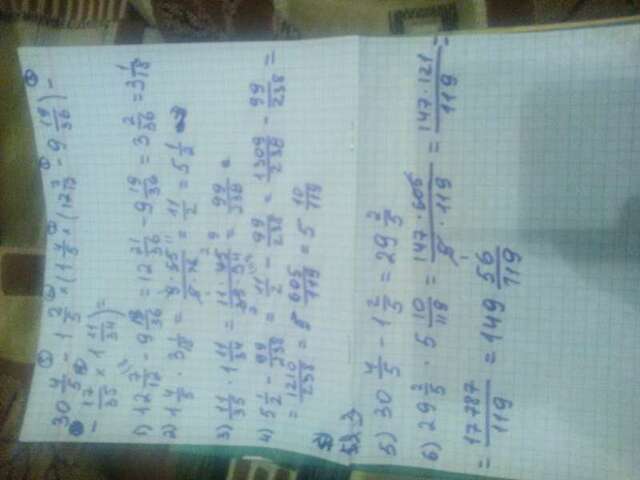 30 4/5 - 1 2/5 × (1 4/5 × (12 7/12 - 9 19/36) -
- 17/35 × 1 11/34) =
1) 12 7/12 - 9 19/36 = 12 21/36 - 9 19/36 = 3 2/36 = 3 1/18
2) 1 4/5 · 3 1/18 = 9·55/5·18 = 11/2 = 5 1/2
3) 11/35 · 1 11/34 = 11·45/35·34 = 99/238
4) 5 1/2 - 99/238 = 11/2 - 99/238 = 1309/238 - 99/238 =
= 1210/238 = 605/119 = 5 10/119
5) 30 4/5 - 1 2/5 = 29 2/5
6) 29 2/5 · 5 10/119 = 147·605/5·119 = 147·121/119 =
= 17787/119 = 149 56/119